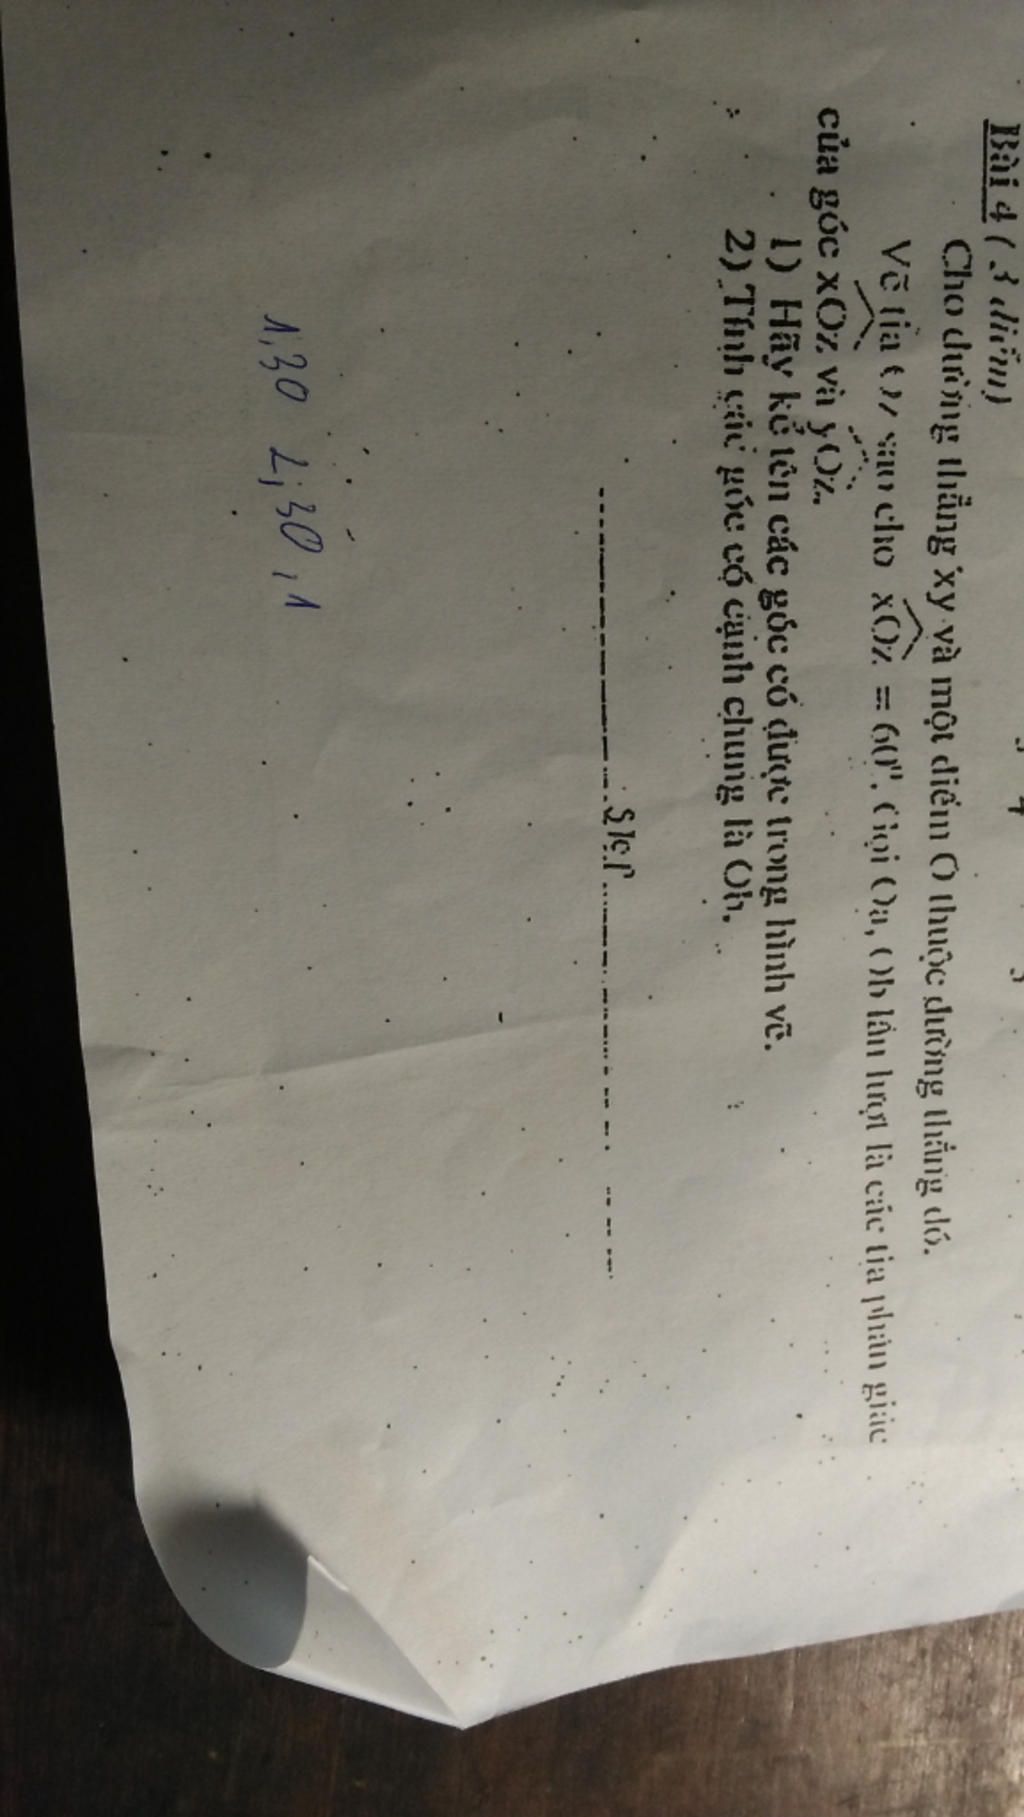 Bài 4 ( 3 điểm)
Cho đường thẳng xy và một điểm O thuộc đường thẳng đó.
Vẽ tia Oz sao cho xOz = 60⁰. Gọi Oa, Ob lần lượt là các tia phân giác
của góc xOz và yOz.
1) Hãy kể tên các góc có được trong hình vẽ.
2) Tính các góc có cạnh chung là Ob.
1,30 2,30,1